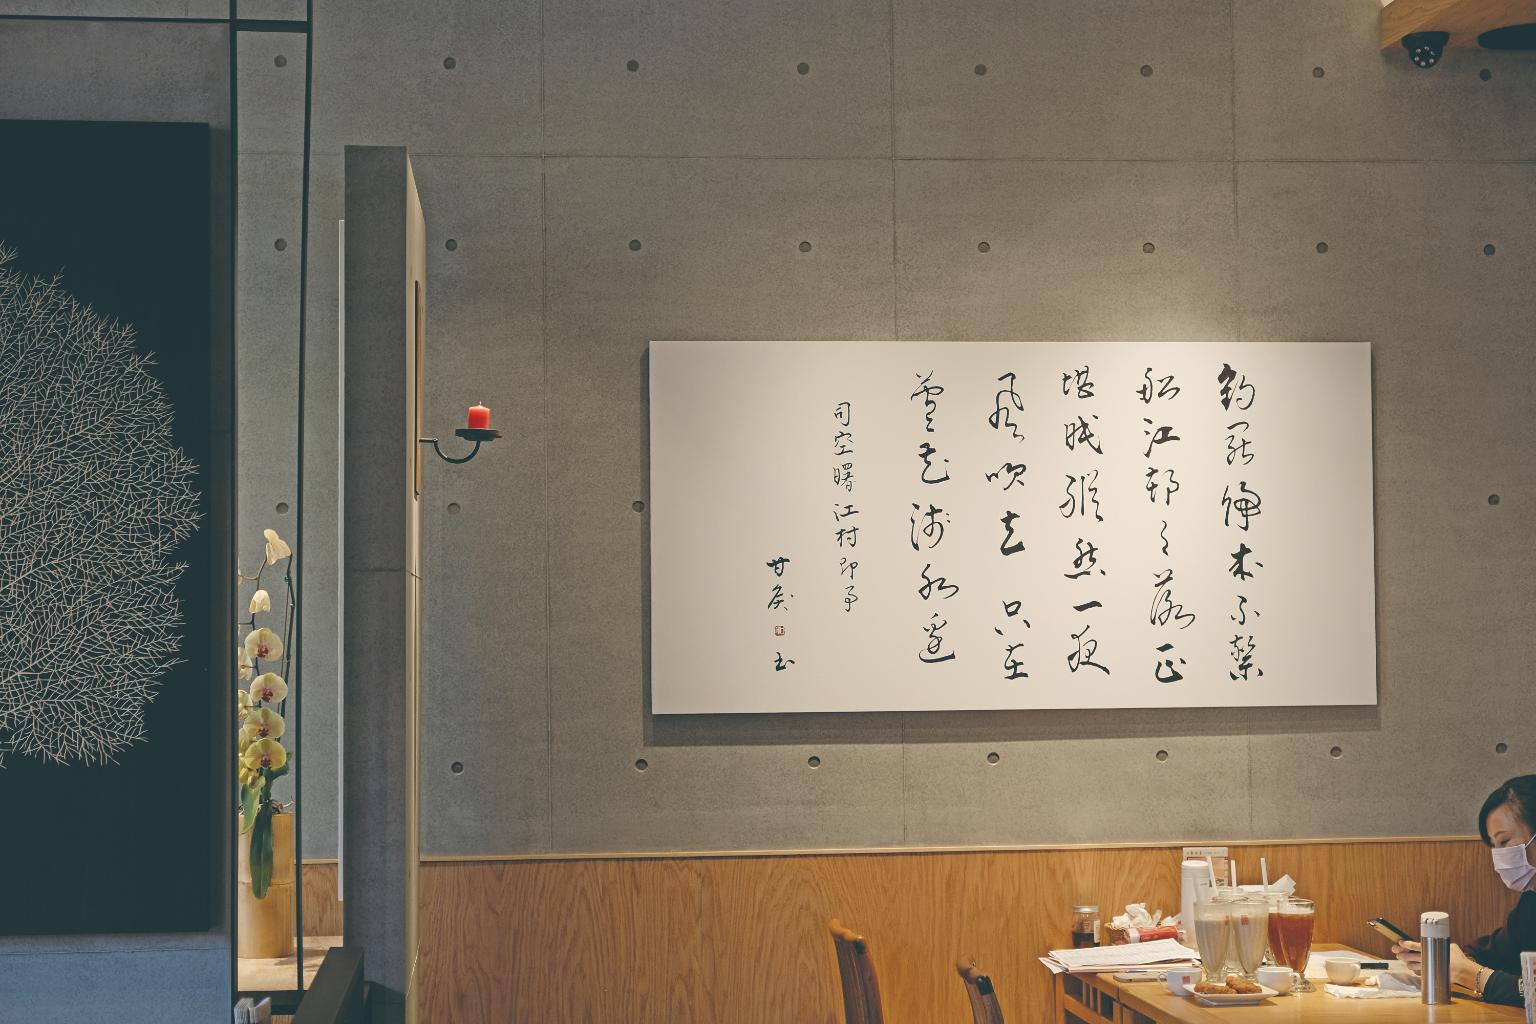 釣罷歸來不繫
船江邨月落正
堪眠縱然一夜
風吹去只在
蘆花淺水邊
司空曙江村即事
甘